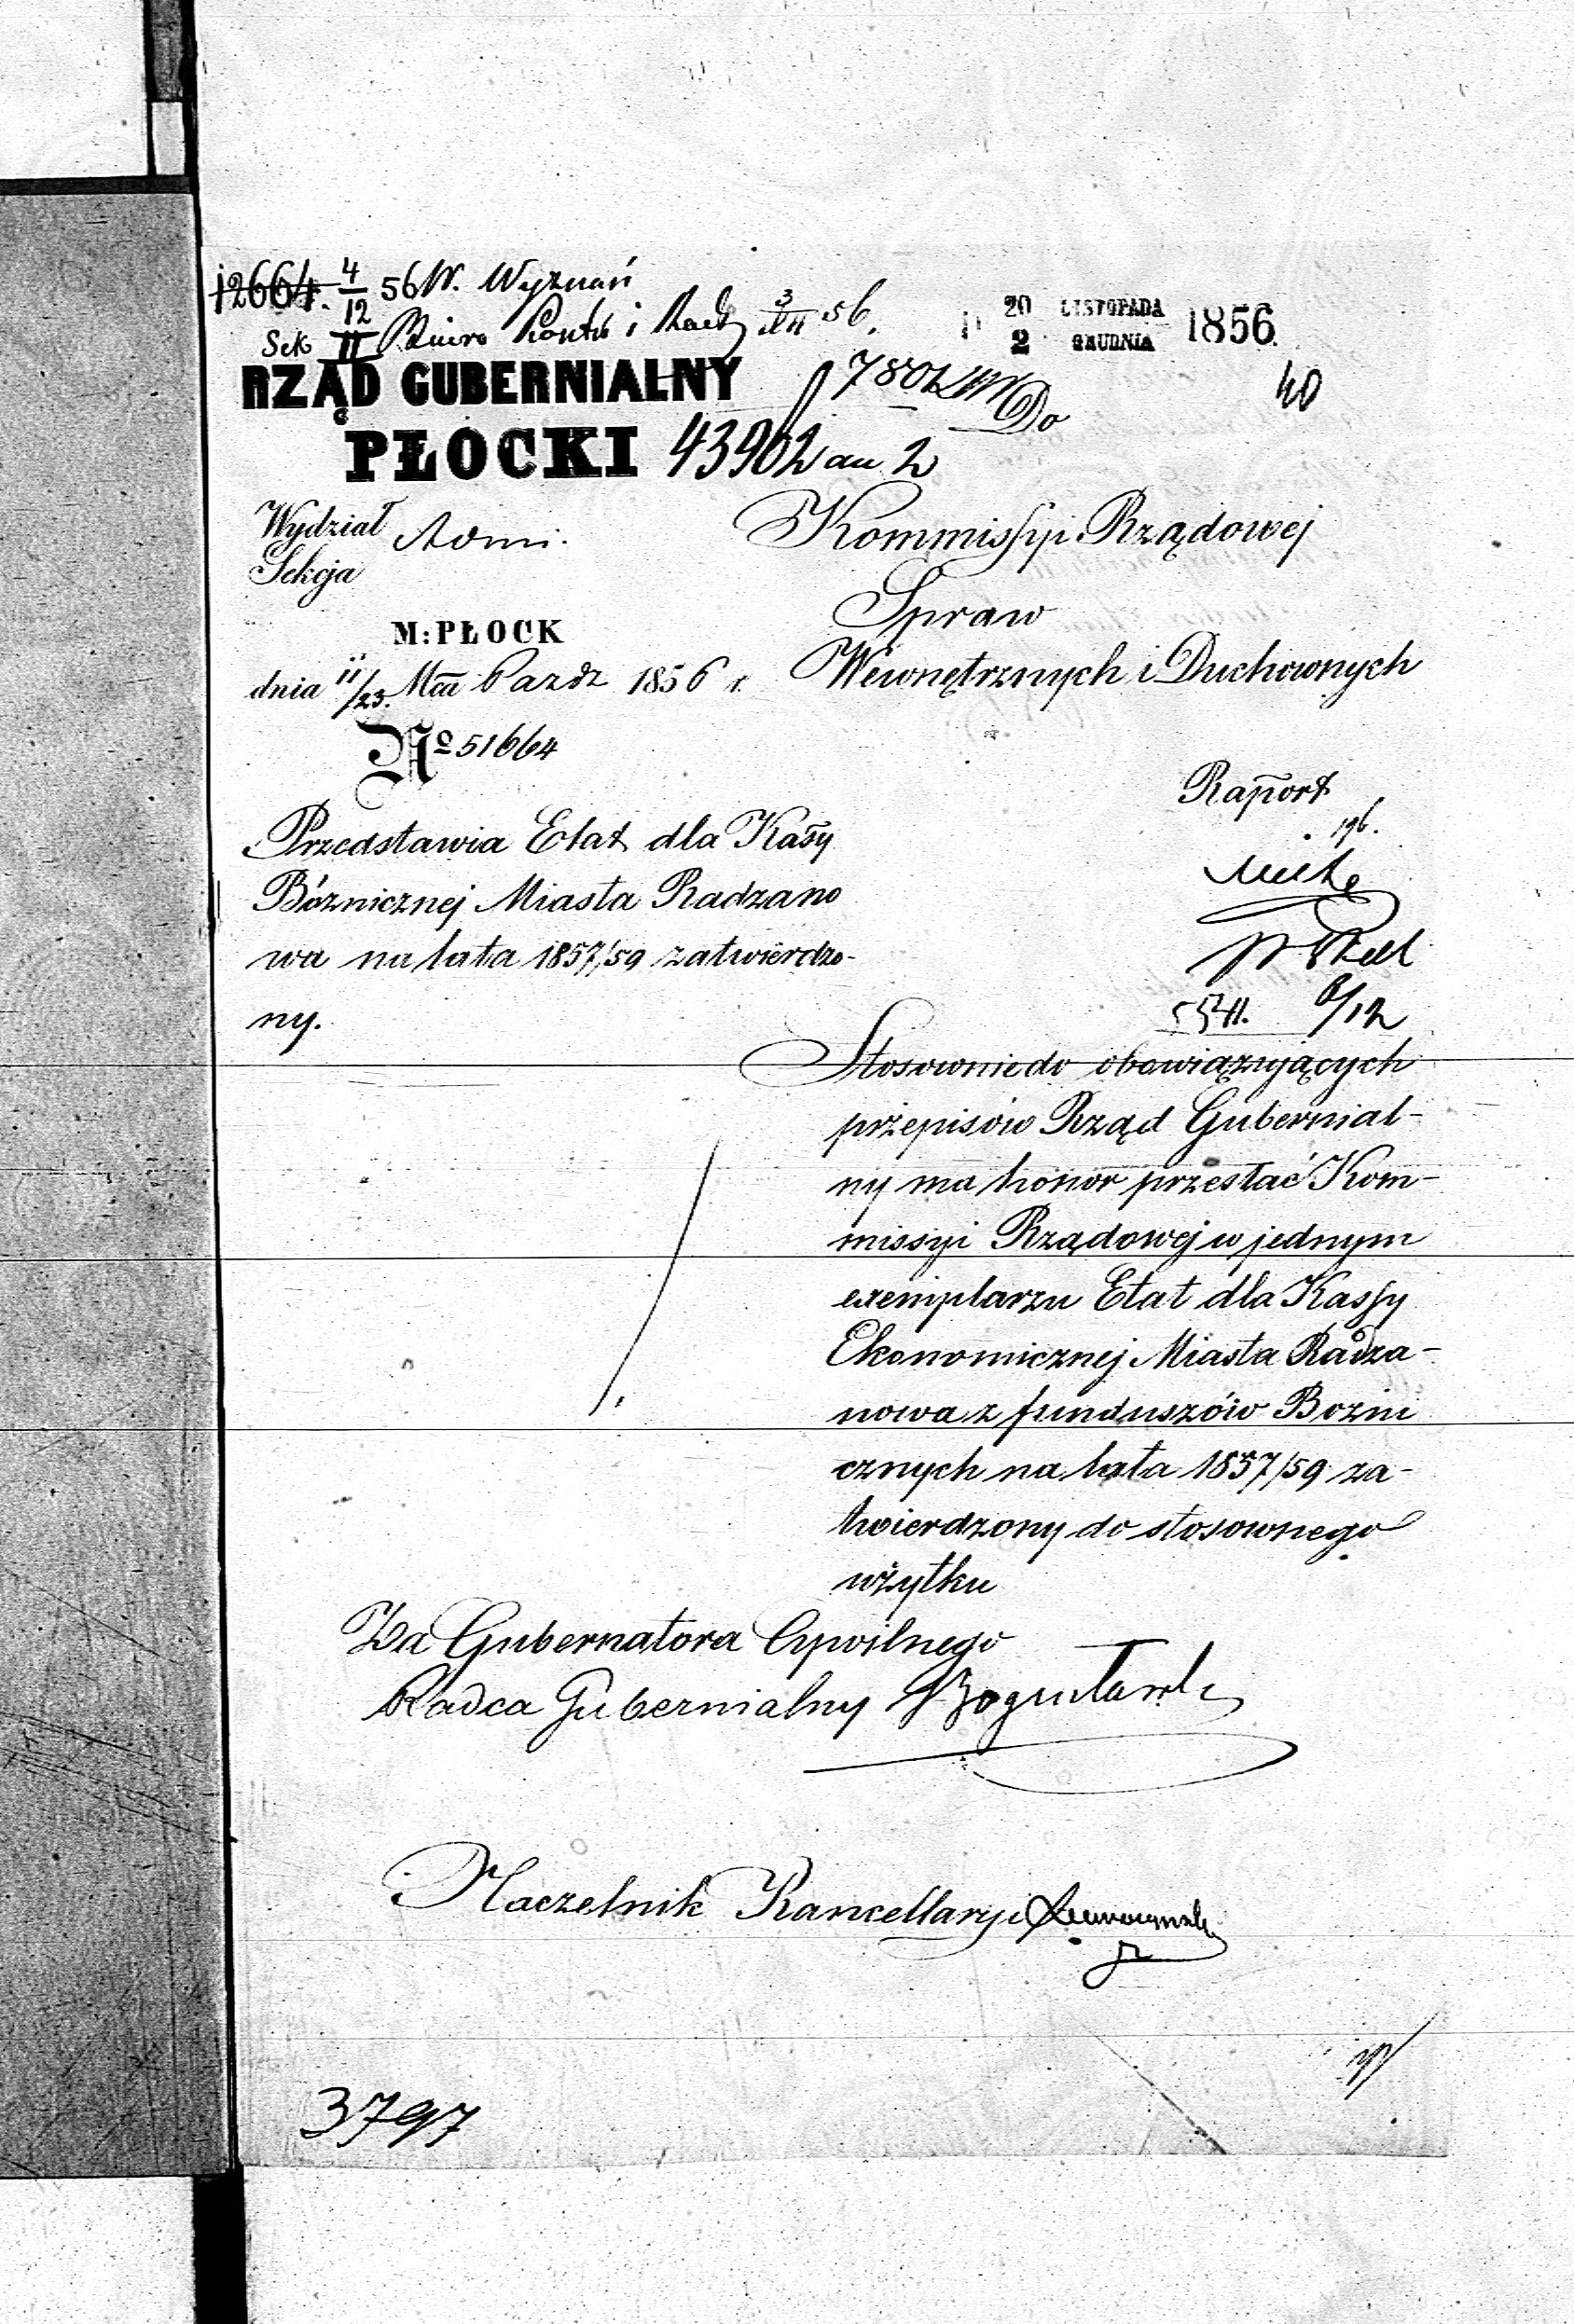 12664. 4/12 56 W. Wyznań
Sek II Biuro Kontr i Rach 3/XII 56.
20 LISTOPADA
2 GRUDNIA 1856
RZĄD GUBERNIALNY
40
Do
PŁOCKI 43902 an 2
Wydział Admi.
Kommissyi Rządowej
Sekcja
Spraw
M: PŁOCK
Wewnętrznych i Duchownych
dnia 11/23. Mca Pazdz 1856 r.
No 51664
Raport
Przedstawia Etat dla Kassy
Bóżnicznej Miasta Radzano
wa na lata 1857/59 zatwierdzo-
ny.
6/12
Stosownie do obowiązujących
przepisów Rząd Gubernial-
ny ma honor przesłać Kom-
missyi Rządowej w jednym
exemplarzu Etat dla Kassy
Ekonomicznej Miasta Radza-
nowa z funduszów Bozni
cznych na lata 1857/59 za-
twierdzony do stosownego
użytku
Za Gubernatora Cywilnego
Radca Gubernialny
Naczelnik Kancellaryi
3797